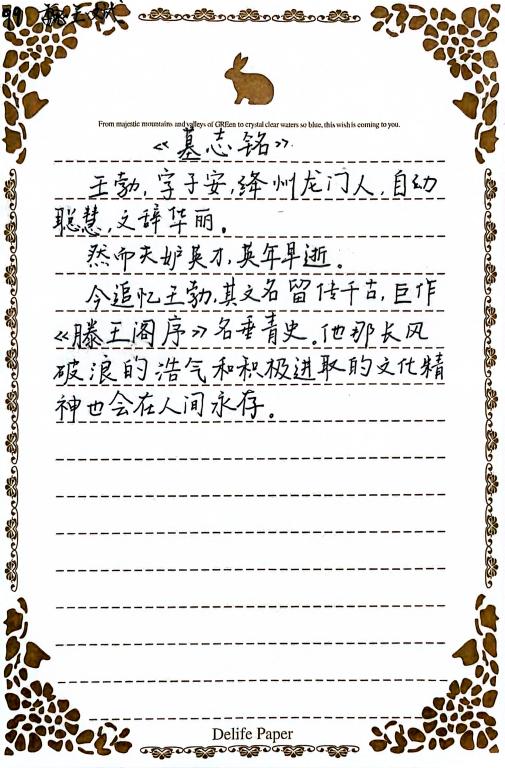 From majestic mountains and valleys of GREen to crystal clear waters so blue, this wish is coming to you.
《墓志铭》
王勃,字子安,绛州龙门人,自幼
聪慧,文辞华丽。
然而天妒英才,英年早逝。
今追忆王勃,其文名留传千古,巨作
《滕王阁序》名垂青史。他那长风
破浪的浩气和积极进取的文化精
神也会在人间永存。
Delife Paper